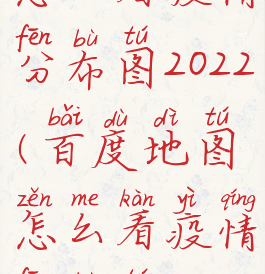 怎么看疫情
fēn bù tú
分布图2022
bǎi dù dì tú
(百度地图
zěn me kàn yì qíng
怎么看疫情